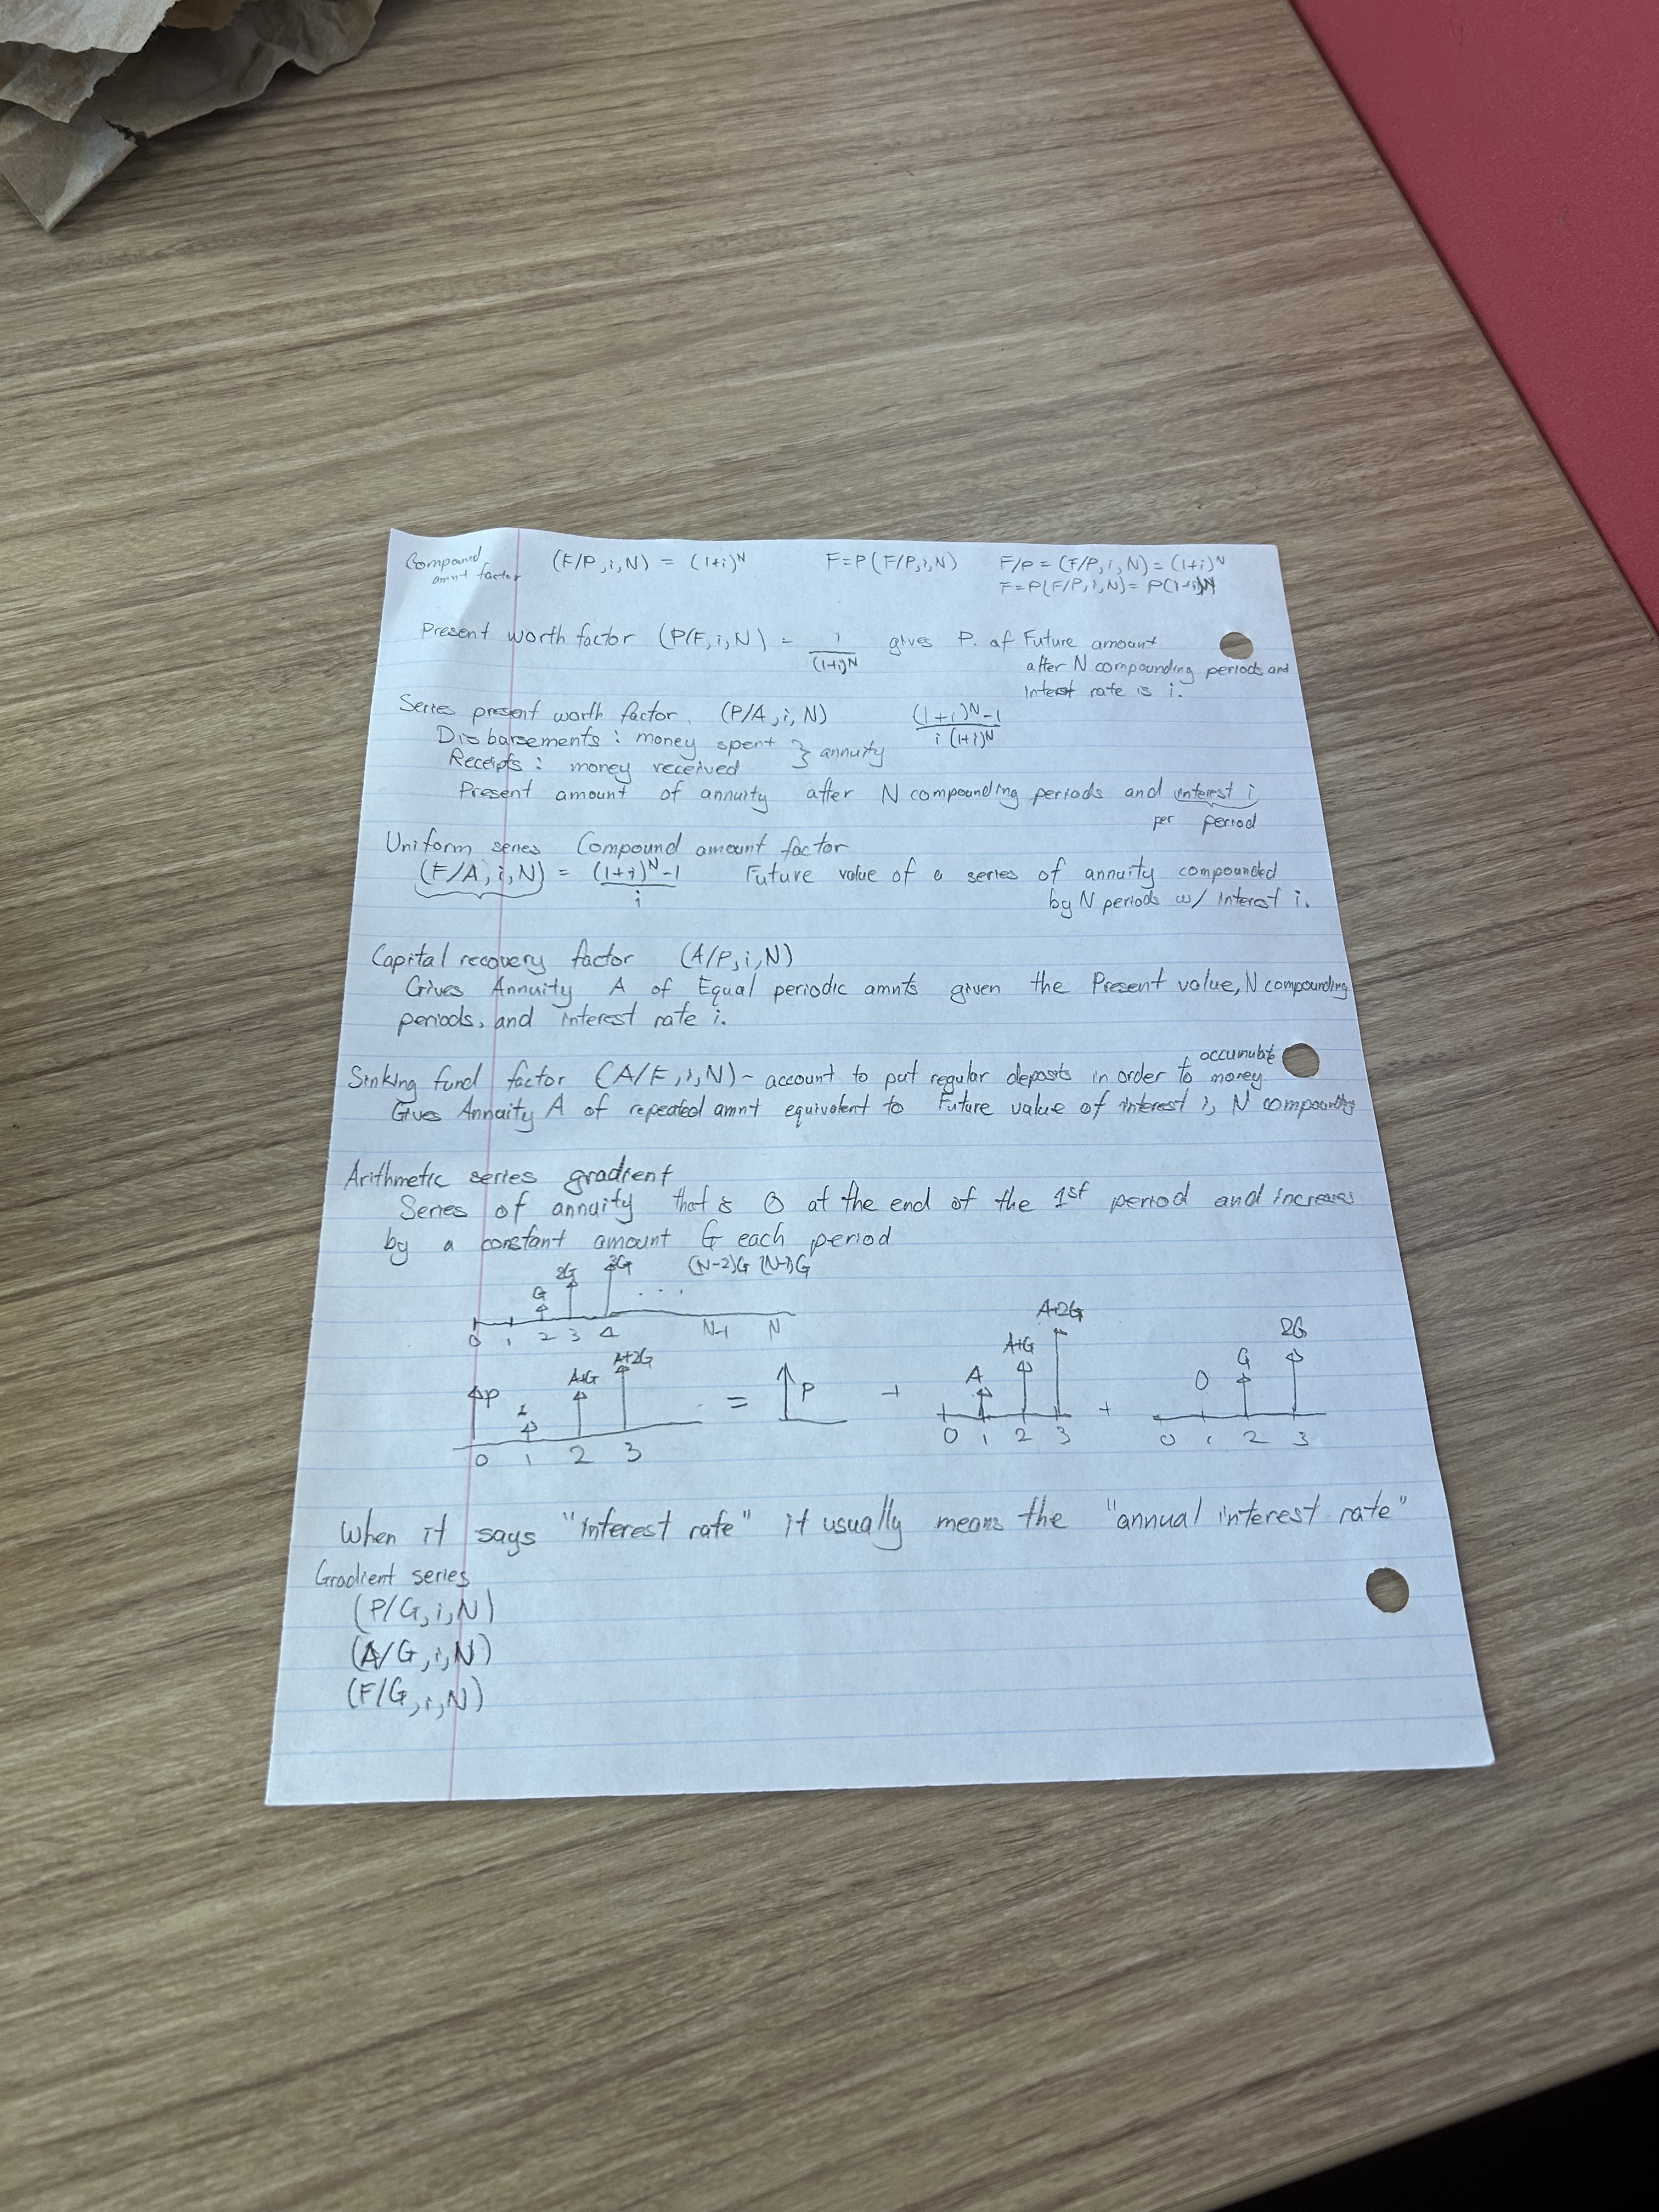 Compound
amnt factor
(F/P, i, N) = (1+i)^N F=P(F/P,i,N) F/P = (F/P, i, N) = (1+i)^N
F=P(F/P, i, N) = P(1+i)^N
Present worth factor (P/F, i, N) = 1/(1+i)^N gives P. of Future amount
after N compounding periods and
interest rate is i.
Series present worth factor. (P/A, i, N) ((1+i)^N-1)/(i(1+i)^N)
Disbarsements: money spent } annuity
Receipts: money received
Present amount of annuity after N compounding periods and interest i
per period
Uniform series Compound amount factor
(F/A, i, N) = ((1+i)^N-1)/i Future value of a series of annuity compounded
by N periods w/ interest i.
Capital recovery factor (A/P, i, N)
Gives Annuity A of Equal periodic amnts given the Present value, N compounding
periods, and interest rate i.
Sinking fund factor (A/F, i, N) - account to put regular deposits in order to accumulate money
Gives Annuity A of repeated amnt equivalent to Future value of interest i, N compounding
Arithmetic series gradient
Series of annuity that is 0 at the end of the 1st period and increases
by a constant amount G each period
G 2G 3G ... (N-2)G (N-1)G
0 1 2 3 4 N-1 N
P A A+G A+2G = P + A A+G A+2G + 0 G 2G
0 1 2 3 0 1 2 3 0 1 2 3
When it says "interest rate" it usually means the "annual interest rate"
Gradient series
(P/G, i, N)
(A/G, i, N)
(F/G, i, N)